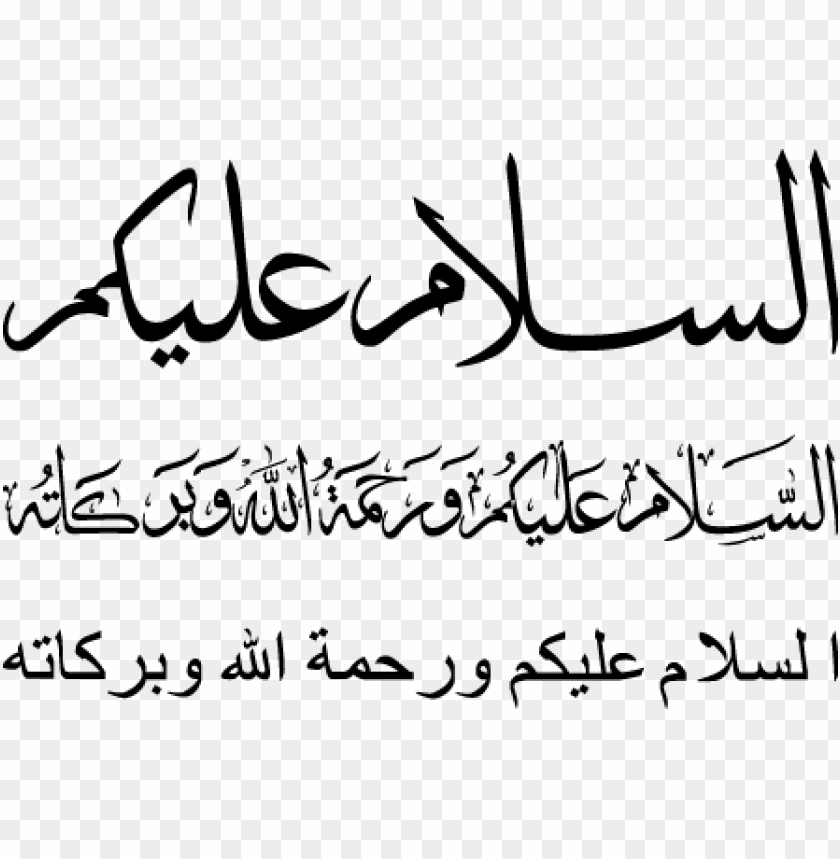 السلام عليكم
السَّلَامُ عَلَيكُم وَرَحمَةُ اللَّهُ وَبَرَكَاتُه
السلام عليكم ورحمة الله وبركاته